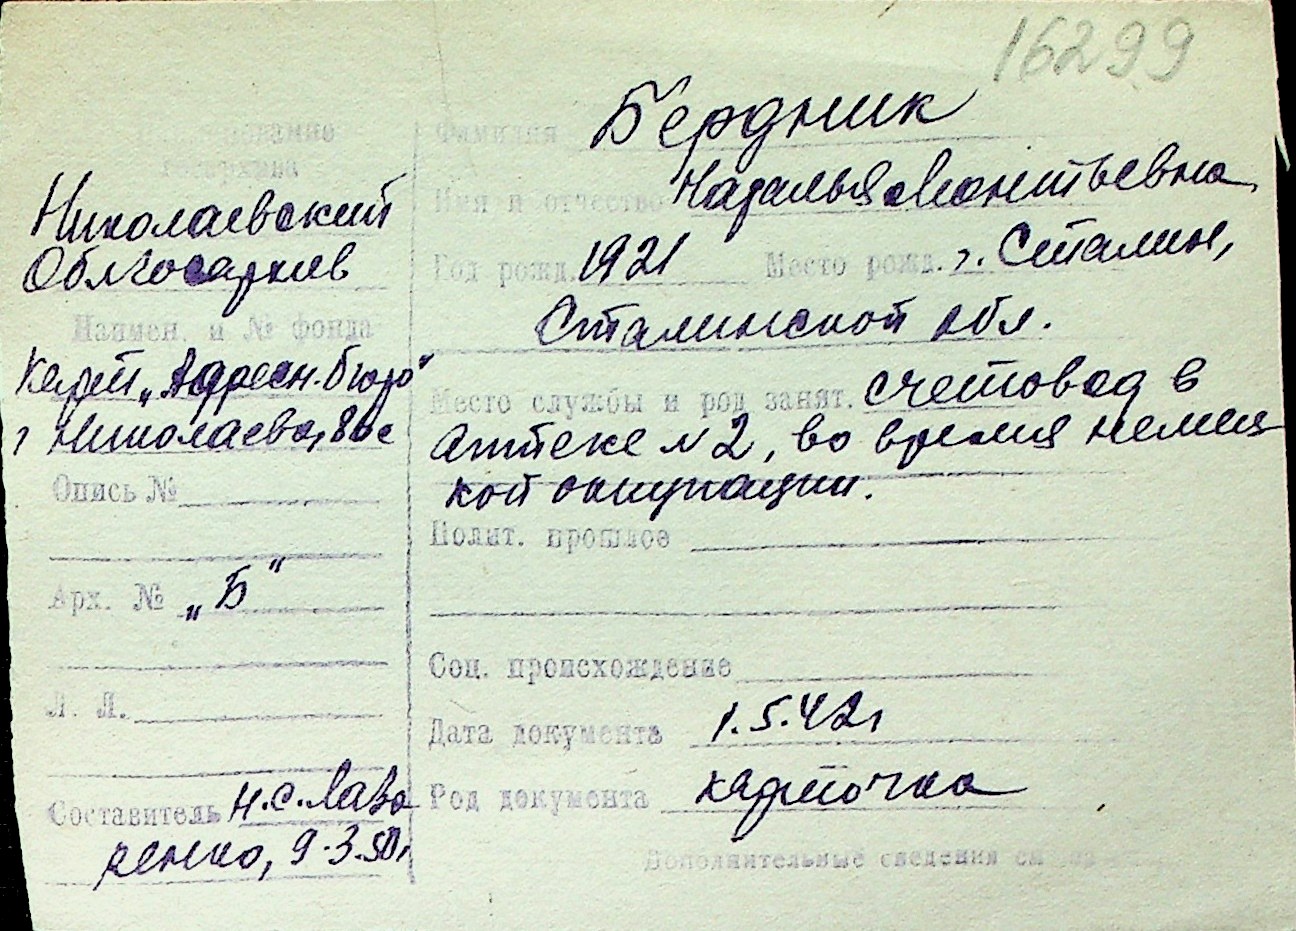 16299
Фамилия Бердник
Имя и отчество Наталья Леонтьевна
Год рожд. 1921 Место рожд. г. Сталин,
Сталинской обл.
Место службы и род занят. счетовод в
аптеке № 2, во время немец
кой оккупации.
Полит. прошлое
Соц. происхождение
Дата документа 1.5.42г
Род документа карточка
Дополнительные сведения см. на
госархива
Николаевский
Облгосархив
Наимен. и № фонда
Карт „Адресн. бюро"
г Николаева,
Опись №
Арх. № „Б"
Л. Л.
Составитель Н.С. Лаза
ренко, 9.3.50г